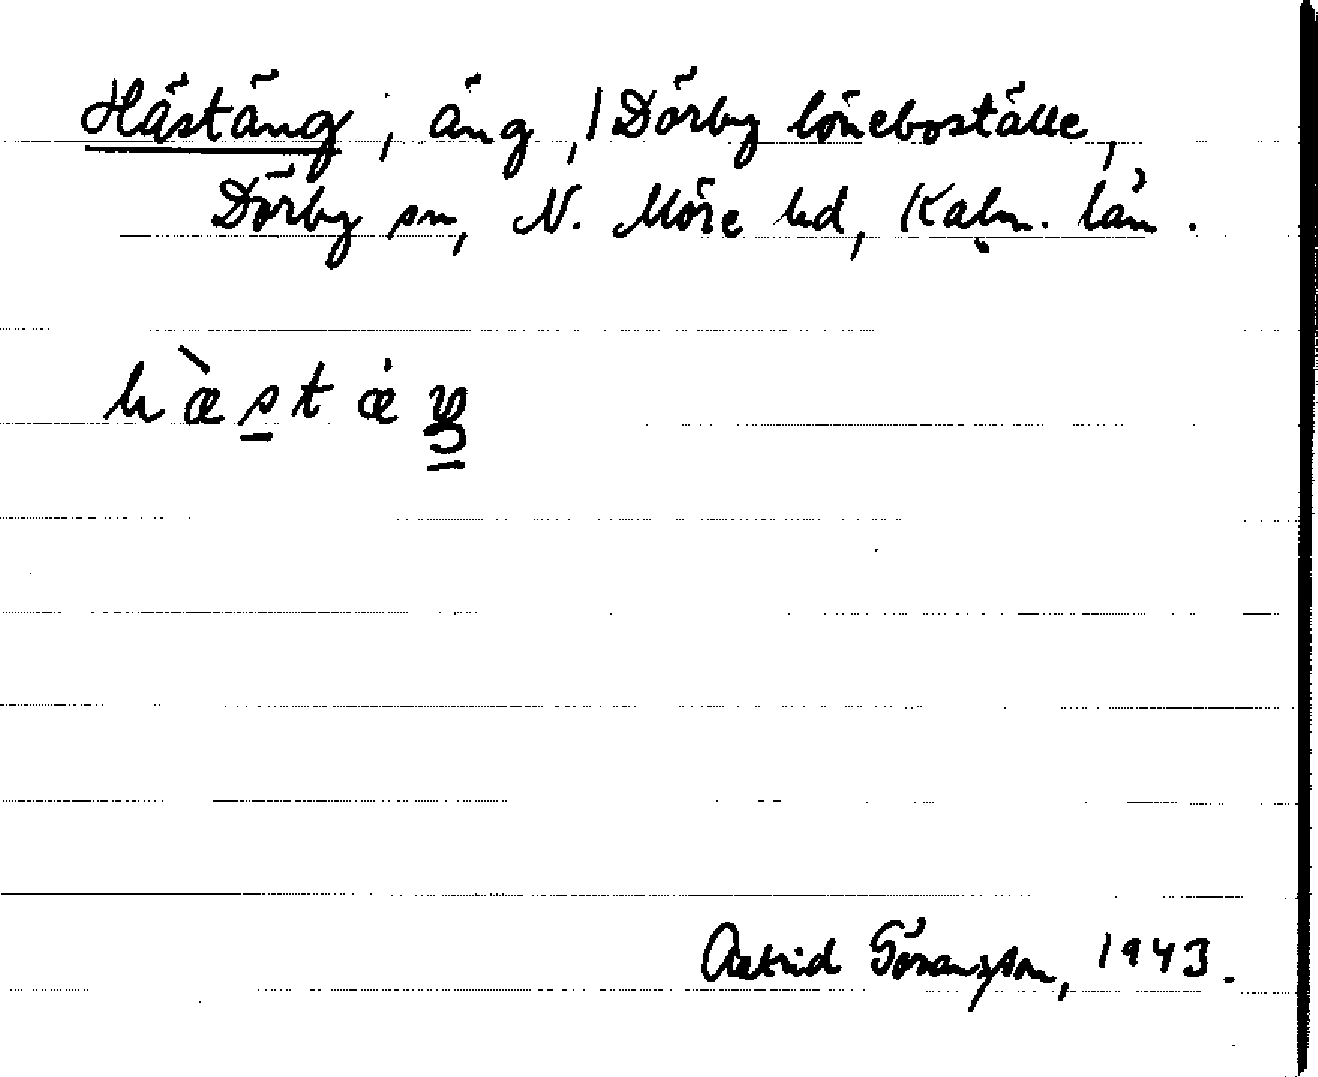 Hästäng, äng, Dörby löneboställe,
Dörby sn, N. Möre hd, Kalm. län.
hæ̀stæŋ
Astrid Göransson, 1943.